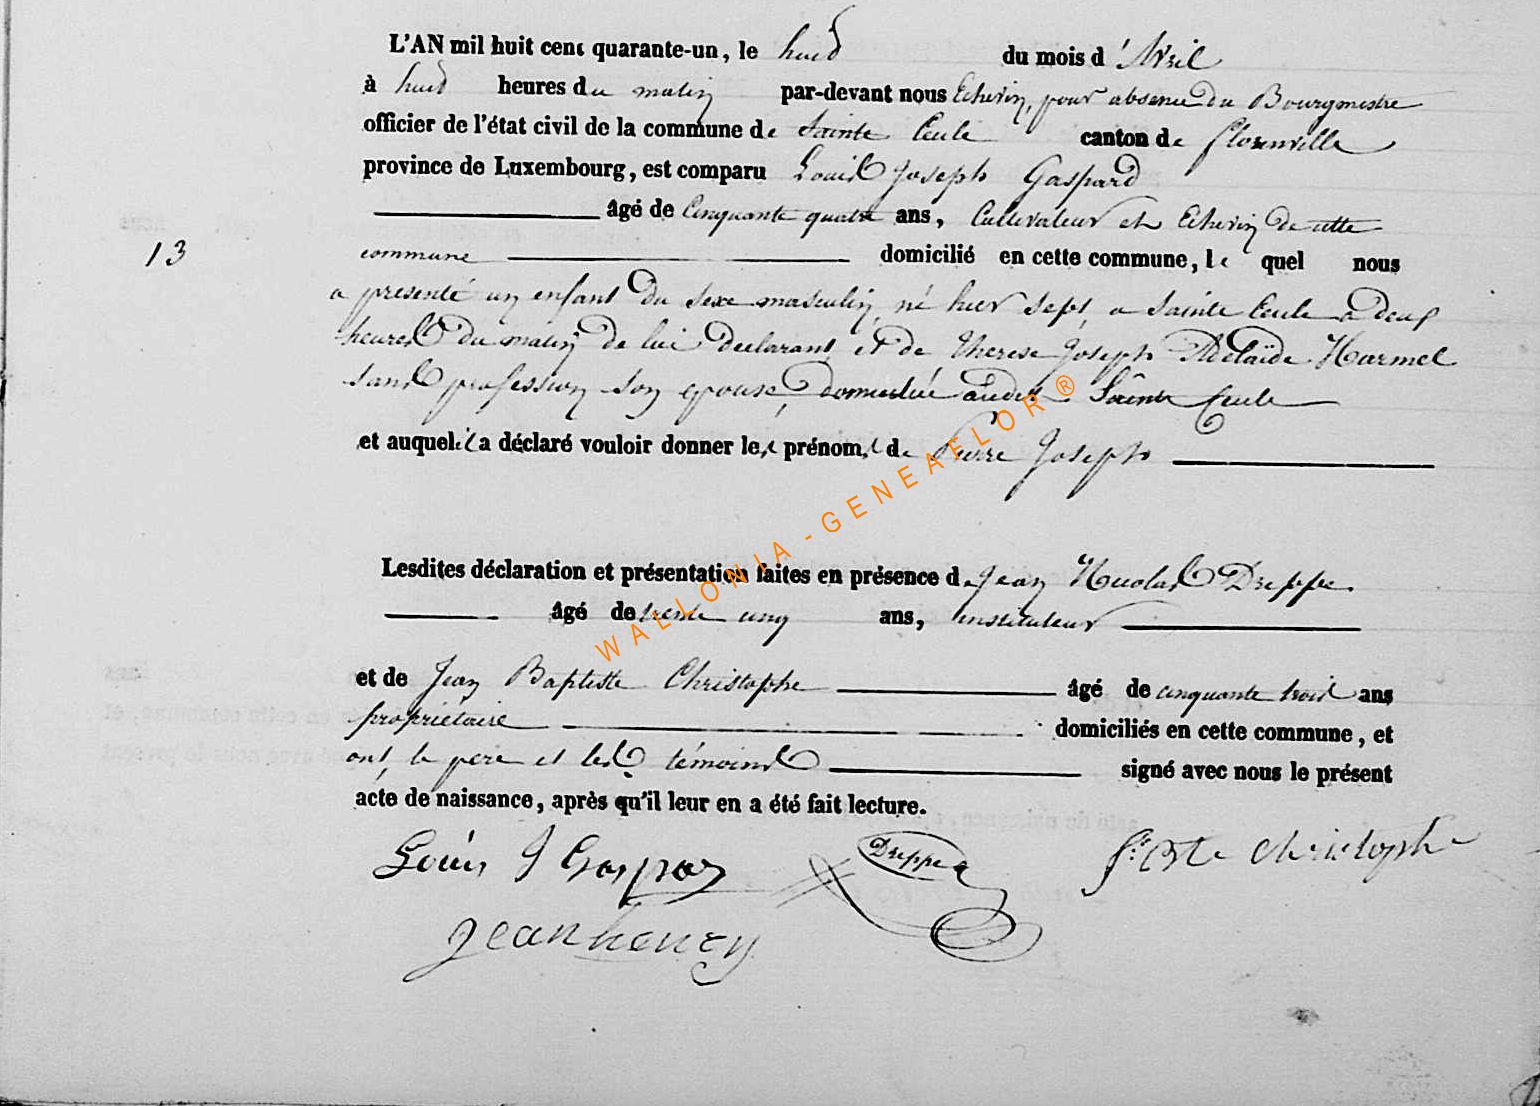 L'AN mil huit cent quarante-un, le huit du mois d'Avril
à huit heures du matin par-devant nous Echevin, pour absence du Bourgmestre
officier de l'état civil de la commune de Sainte Cecile canton de florenville
province de Luxembourg, est comparu Louis Joseph Gaspard
âgé de Cinquante quatre ans, Cultivateur et Echevin de cette
13 commune domicilié en cette commune, le quel nous
a presenté un enfant du sexe masculin, né hier sept, a Sainte Cecile a deux
heures du matin de lui declarant et de Therese Joseph Adelaïde Harmel
sans profession son epouse, domiciliée audit Sainte Cecile
et auquel il a déclaré vouloir donner les prénoms de Pierre Joseph
Lesdites déclaration et présentation faites en présence de Jean Nicolas Dreppe
âgé de trente cinq ans, instituteur
et de Jean Baptiste Christophe âgé de cinquante trois ans
propriétaire domiciliés en cette commune, et
ont, le pere et les témoins signé avec nous le présent
acte de naissance, après qu'il leur en a été fait lecture.
Louis J Gaspar Dreppe Christophe
jean henry
WALLONIA-GENEAFLOR®